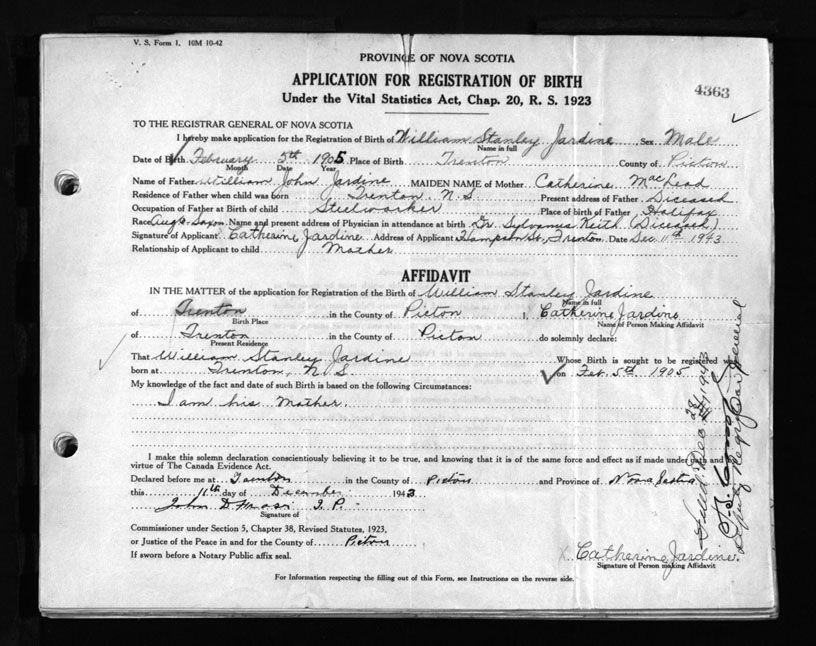 V. S. Form 1. 10M 10-42
PROVINCE OF NOVA SCOTIA
APPLICATION FOR REGISTRATION OF BIRTH
4363
Under the Vital Statistics Act, Chap. 20, R. S. 1923
TO THE REGISTRAR GENERAL OF NOVA SCOTIA
I hereby make application for the Registration of Birth of William Stanley Jardine Sex Male
Name in full
Date of Birth February 5th 1905 Place of Birth Trenton County of Pictou
Month Date Year
Name of Father William John Jardine MAIDEN NAME of Mother Catherine MacLead
Residence of Father when child was born Trenton N.S. Present address of Father Diceased
Occupation of Father at Birth of child Steelworker Place of birth of Father Halifax
Race Anglo Saxon Name and present address of Physician in attendance at birth Dr. Sylvanus Keith (Diceased)
Signature of Applicant Catherine Jardine Address of Applicant Hampson St., Trenton Date Dec 11th 1943
Relationship of Applicant to child Mother
AFFIDAVIT
IN THE MATTER of the application for Registration of the Birth of William Stanley Jardine
Name in full
of Trenton in the County of Pictou I, Catherine Jardine
Birth Place Name of Person Making Affidavit
of Trenton in the County of Pictou do solemnly declare:
Present Residence
That William Stanley Jardine Whose Birth is sought to be registered was
born at Trenton, N.S. on Feb. 5th 1905
My knowledge of the fact and date of such Birth is based on the following Circumstances:
I am his Mother.
I make this solemn declaration conscientiously believing it to be true, and knowing that it is of the same force and effect as if made under oath and by
virtue of The Canada Evidence Act.
Declared before me at Trenton in the County of Pictou and Province of Nova Scotia
this 11th day of December 1943
John D. J.P.
Signature of
Commissioner under Section 5, Chapter 38, Revised Statutes, 1923,
or Justice of the Peace in and for the County of Pictou
If sworn before a Notary Public affix seal.
X Catherine Jardine
Signature of Person making Affidavit
For Information respecting the filling out of this Form, see Instructions on the reverse side.
Filed Dec 28/1943
Deputy Registrar General